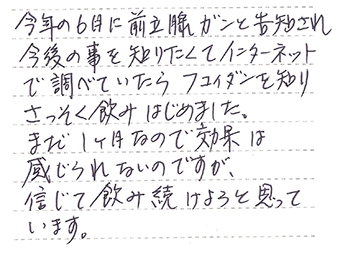 今年の6月に前立腺ガンと告知され
今後の事を知りたくてインターネット
で調べていたらフコイダンを知り
さっそく飲みはじめました。
まだ1ヶ月なので効果は
感じられないのですが、
信じて飲み続けようと思って
います。